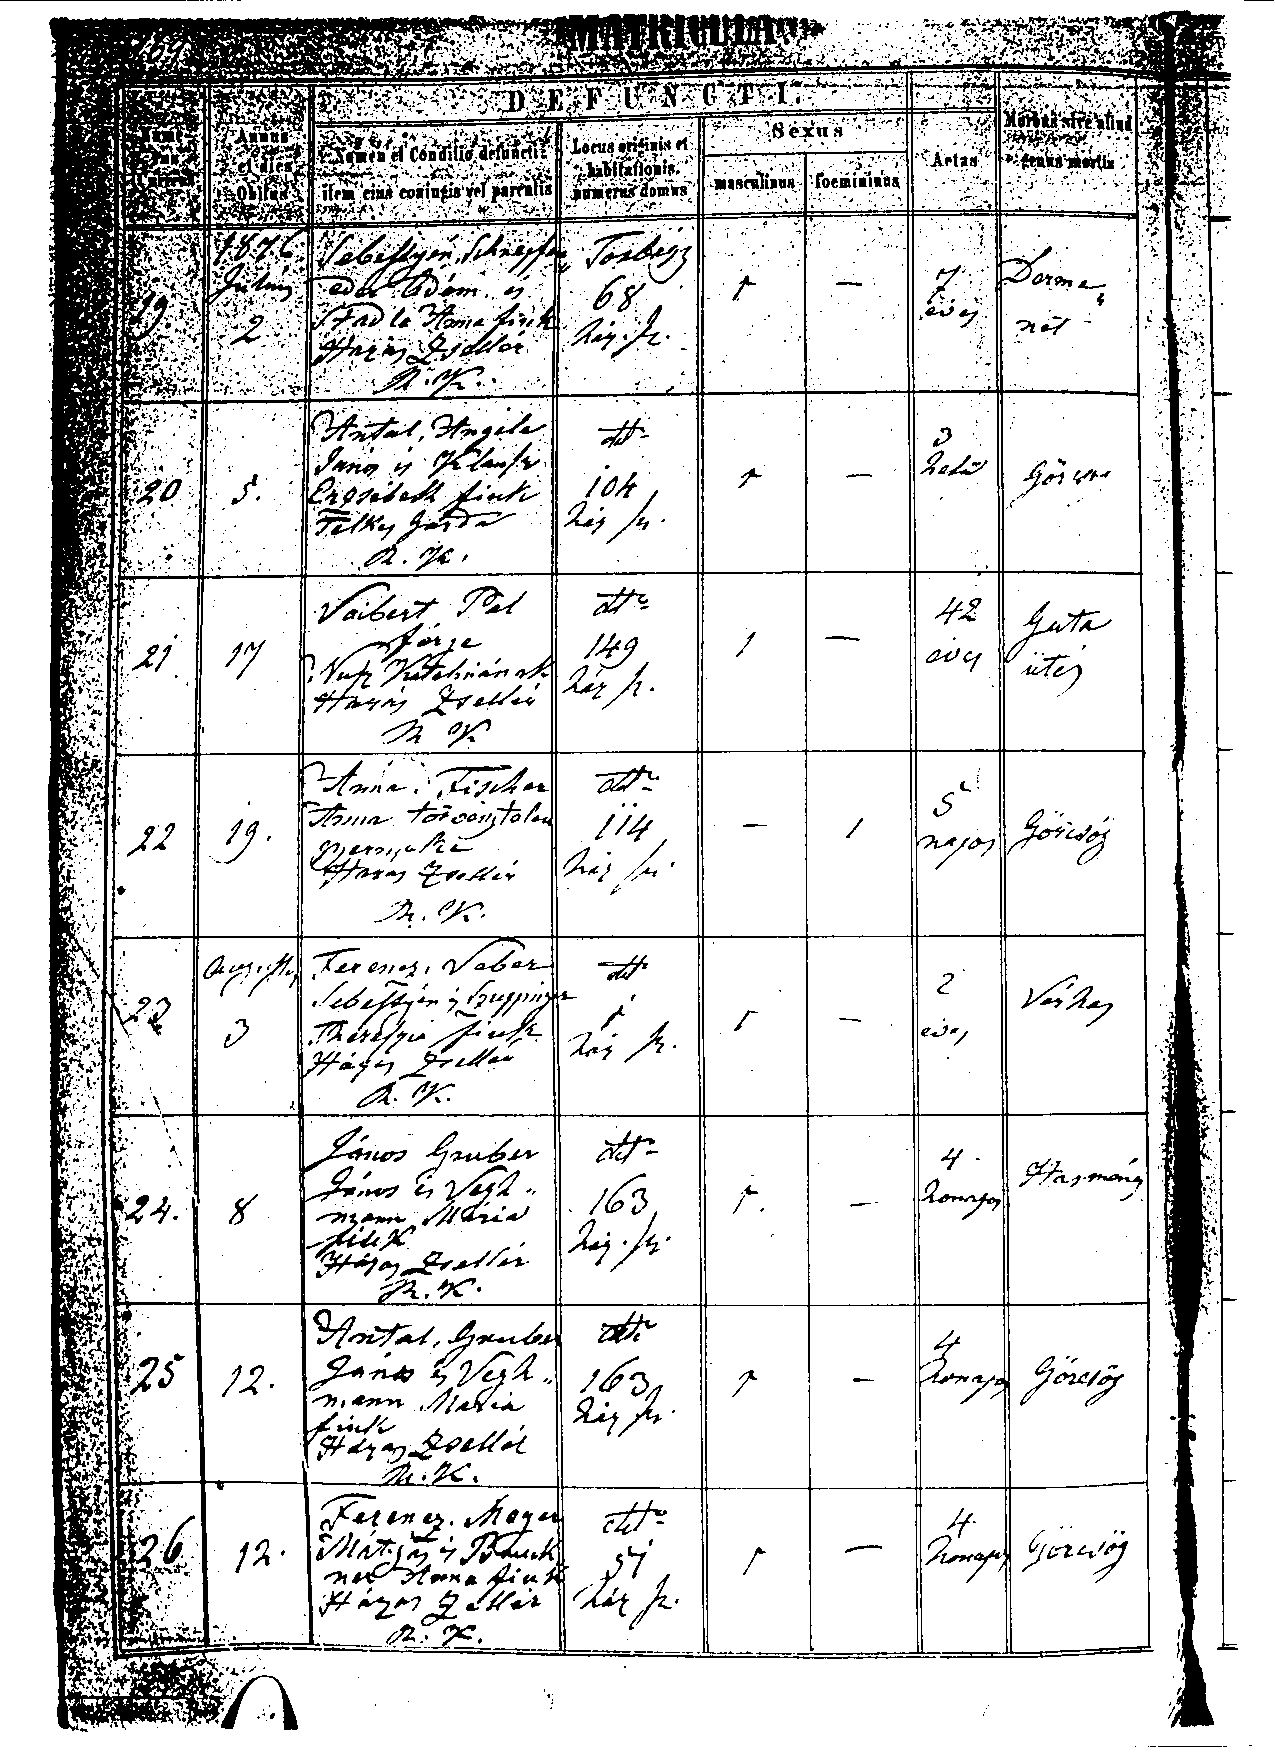 MATRICULA
DEFUNCTI.
Annus et dies Obitus
Nomen et Conditio defuncti item eius coniugis vel parentis
Locus originis et habitationis, numerus domus
Sexus
masculinus
foemininus
Aetas
Morbus sive aliud genus mortis
19.
Julius
2
Sebestyén,
Ádám és
Anna fiuk
Házas Zsellér
R. K.
Torbágy
68
ház sz.
1
—
7
éves
20
5.
Antal, Angele
János és
Erzsébeth fiuk
R. K.
dtto
104
ház sz.
1
—
3
Görcs
21
17
Vaibert Pál
férje
Házas Zsellér
R. K.
dtto
149
ház sz.
1
—
42
éves
Guta
ütés
22
19.
Anna, Fischer
Anna törvénytelen
Házas Zsellér
R. K.
dtto
114
ház sz.
—
1
5
napos
Görcsög
23
3
Ferencz, Veber
Sebestyén és
Therezia fiuk
Házas Zsellér
R. K.
dtto
1
ház sz.
1
—
2
éves
Vérhas
24.
8
János Gruber
János és Vegh-
mann Mária
fiuk
Házas Zsellér
R. K.
dtto
163
ház sz.
1.
—
4
honapos
25
12.
Antal, Gruber
János és Vegh-
mann Mária
fiuk
Házas Zsellér
R. K.
dtto
163
ház sz.
1
—
4
honapos
Görcsög
26
12.
Ferencz. Mayer
Mátyás és
Anna fiuk
Házas Zsellér
R. K.
dtto
51
ház sz.
1
—
4.
honapos
Görcsög